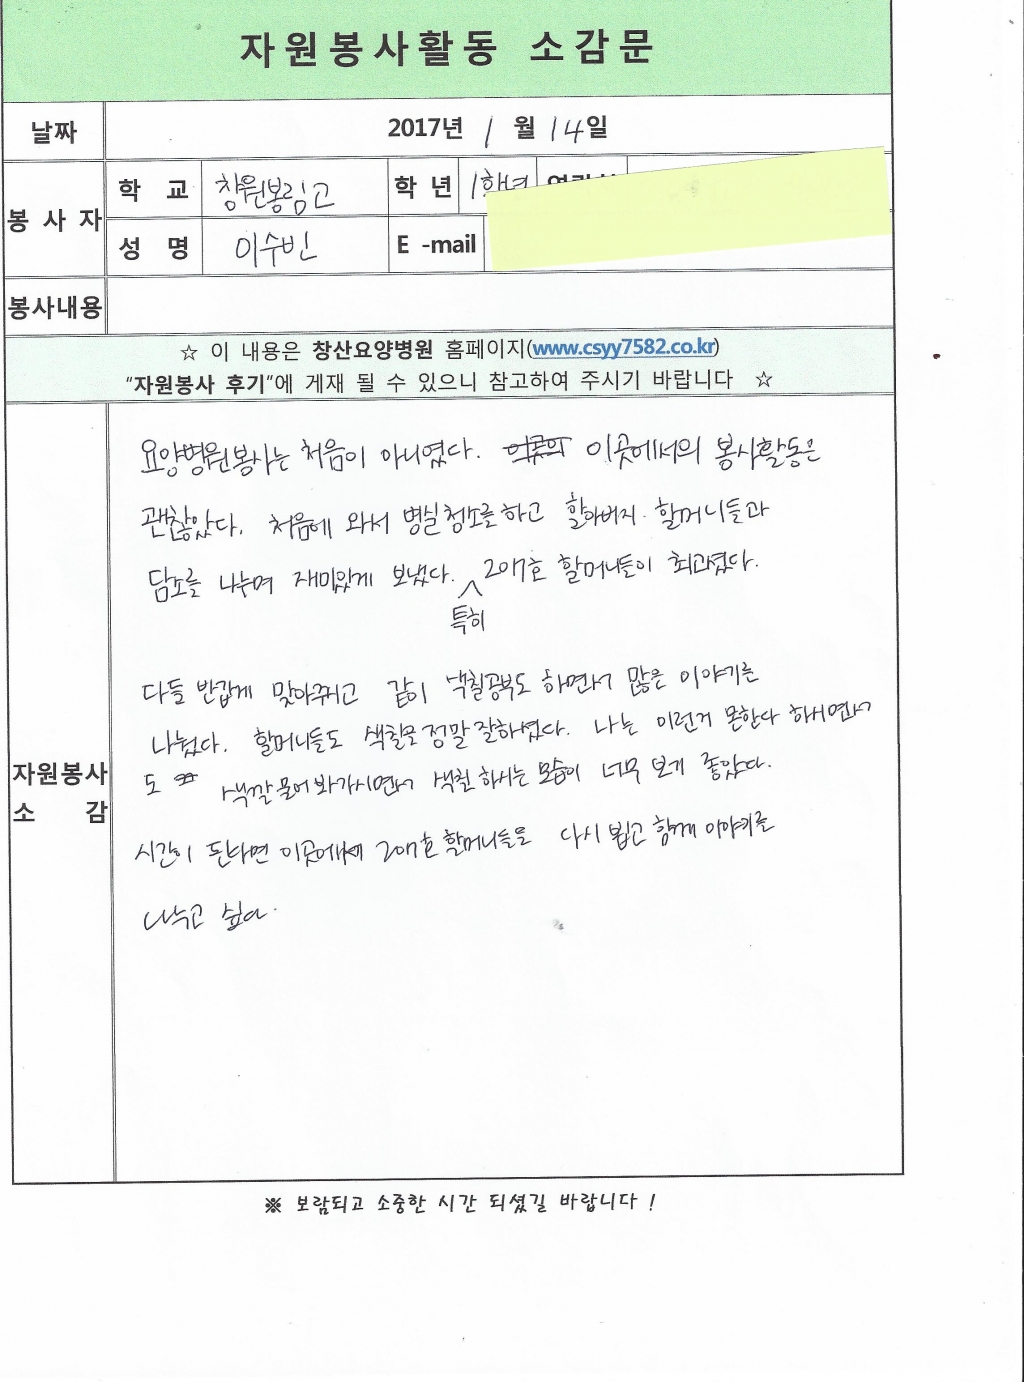 자원봉사활동 소감문
날짜 2017년 1 월 14일
봉 사 자
학 교 창원봉림고 학 년 1학년
성 명 이수빈 E -mail
봉사내용
☆ 이 내용은 창산요양병원 홈페이지(www.csyy7582.co.kr)
"자원봉사 후기"에 게재 될 수 있으니 참고하여 주시기 바랍니다 ☆
자원봉사
소 감
요양병원봉사는 처음이 아니였다. 이곳에서의 봉사활동은
괜찮았다. 처음에 와서 병실청소를 하고 할아버지. 할머니들과
담소를 나누며 재미있게 보냈다. 207호 할머니들이 최고였다.
특히
다들 반갑게 맞아주시고 같이 색칠공부도 하면서 많은 이야기를
나눴다. 할머니들도 색칠을 정말 잘하셨다. 나는 이런거 못한다 하시면서
도 색깔 물어 봐가시면서 색칠 하시는 모습이 너무 보기 좋았다.
시간이 된다면 이곳에 207호 할머니들을 다시 뵙고 함께 이야기를
나누고 싶다.
※ 보람되고 소중한 시간 되셨길 바랍니다 !